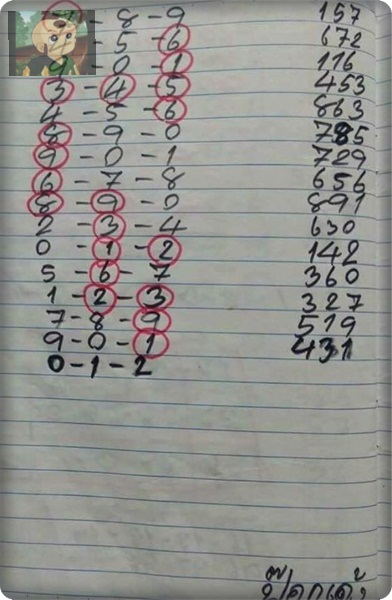 7 - 8 - 9 157
5 - 6 672
9 - 0 - 1 116
3 - 4 - 5 453
4 - 5 - 6 863
8 - 9 - 0 785
9 - 0 - 1 729
6 - 7 - 8 656
8 - 9 - 0 891
2 - 3 - 4 630
0 - 1 - 2 142
5 - 6 - 7 360
1 - 2 - 3 327
7 - 8 - 9 519
9 - 0 - 1 431
0 - 1 - 2